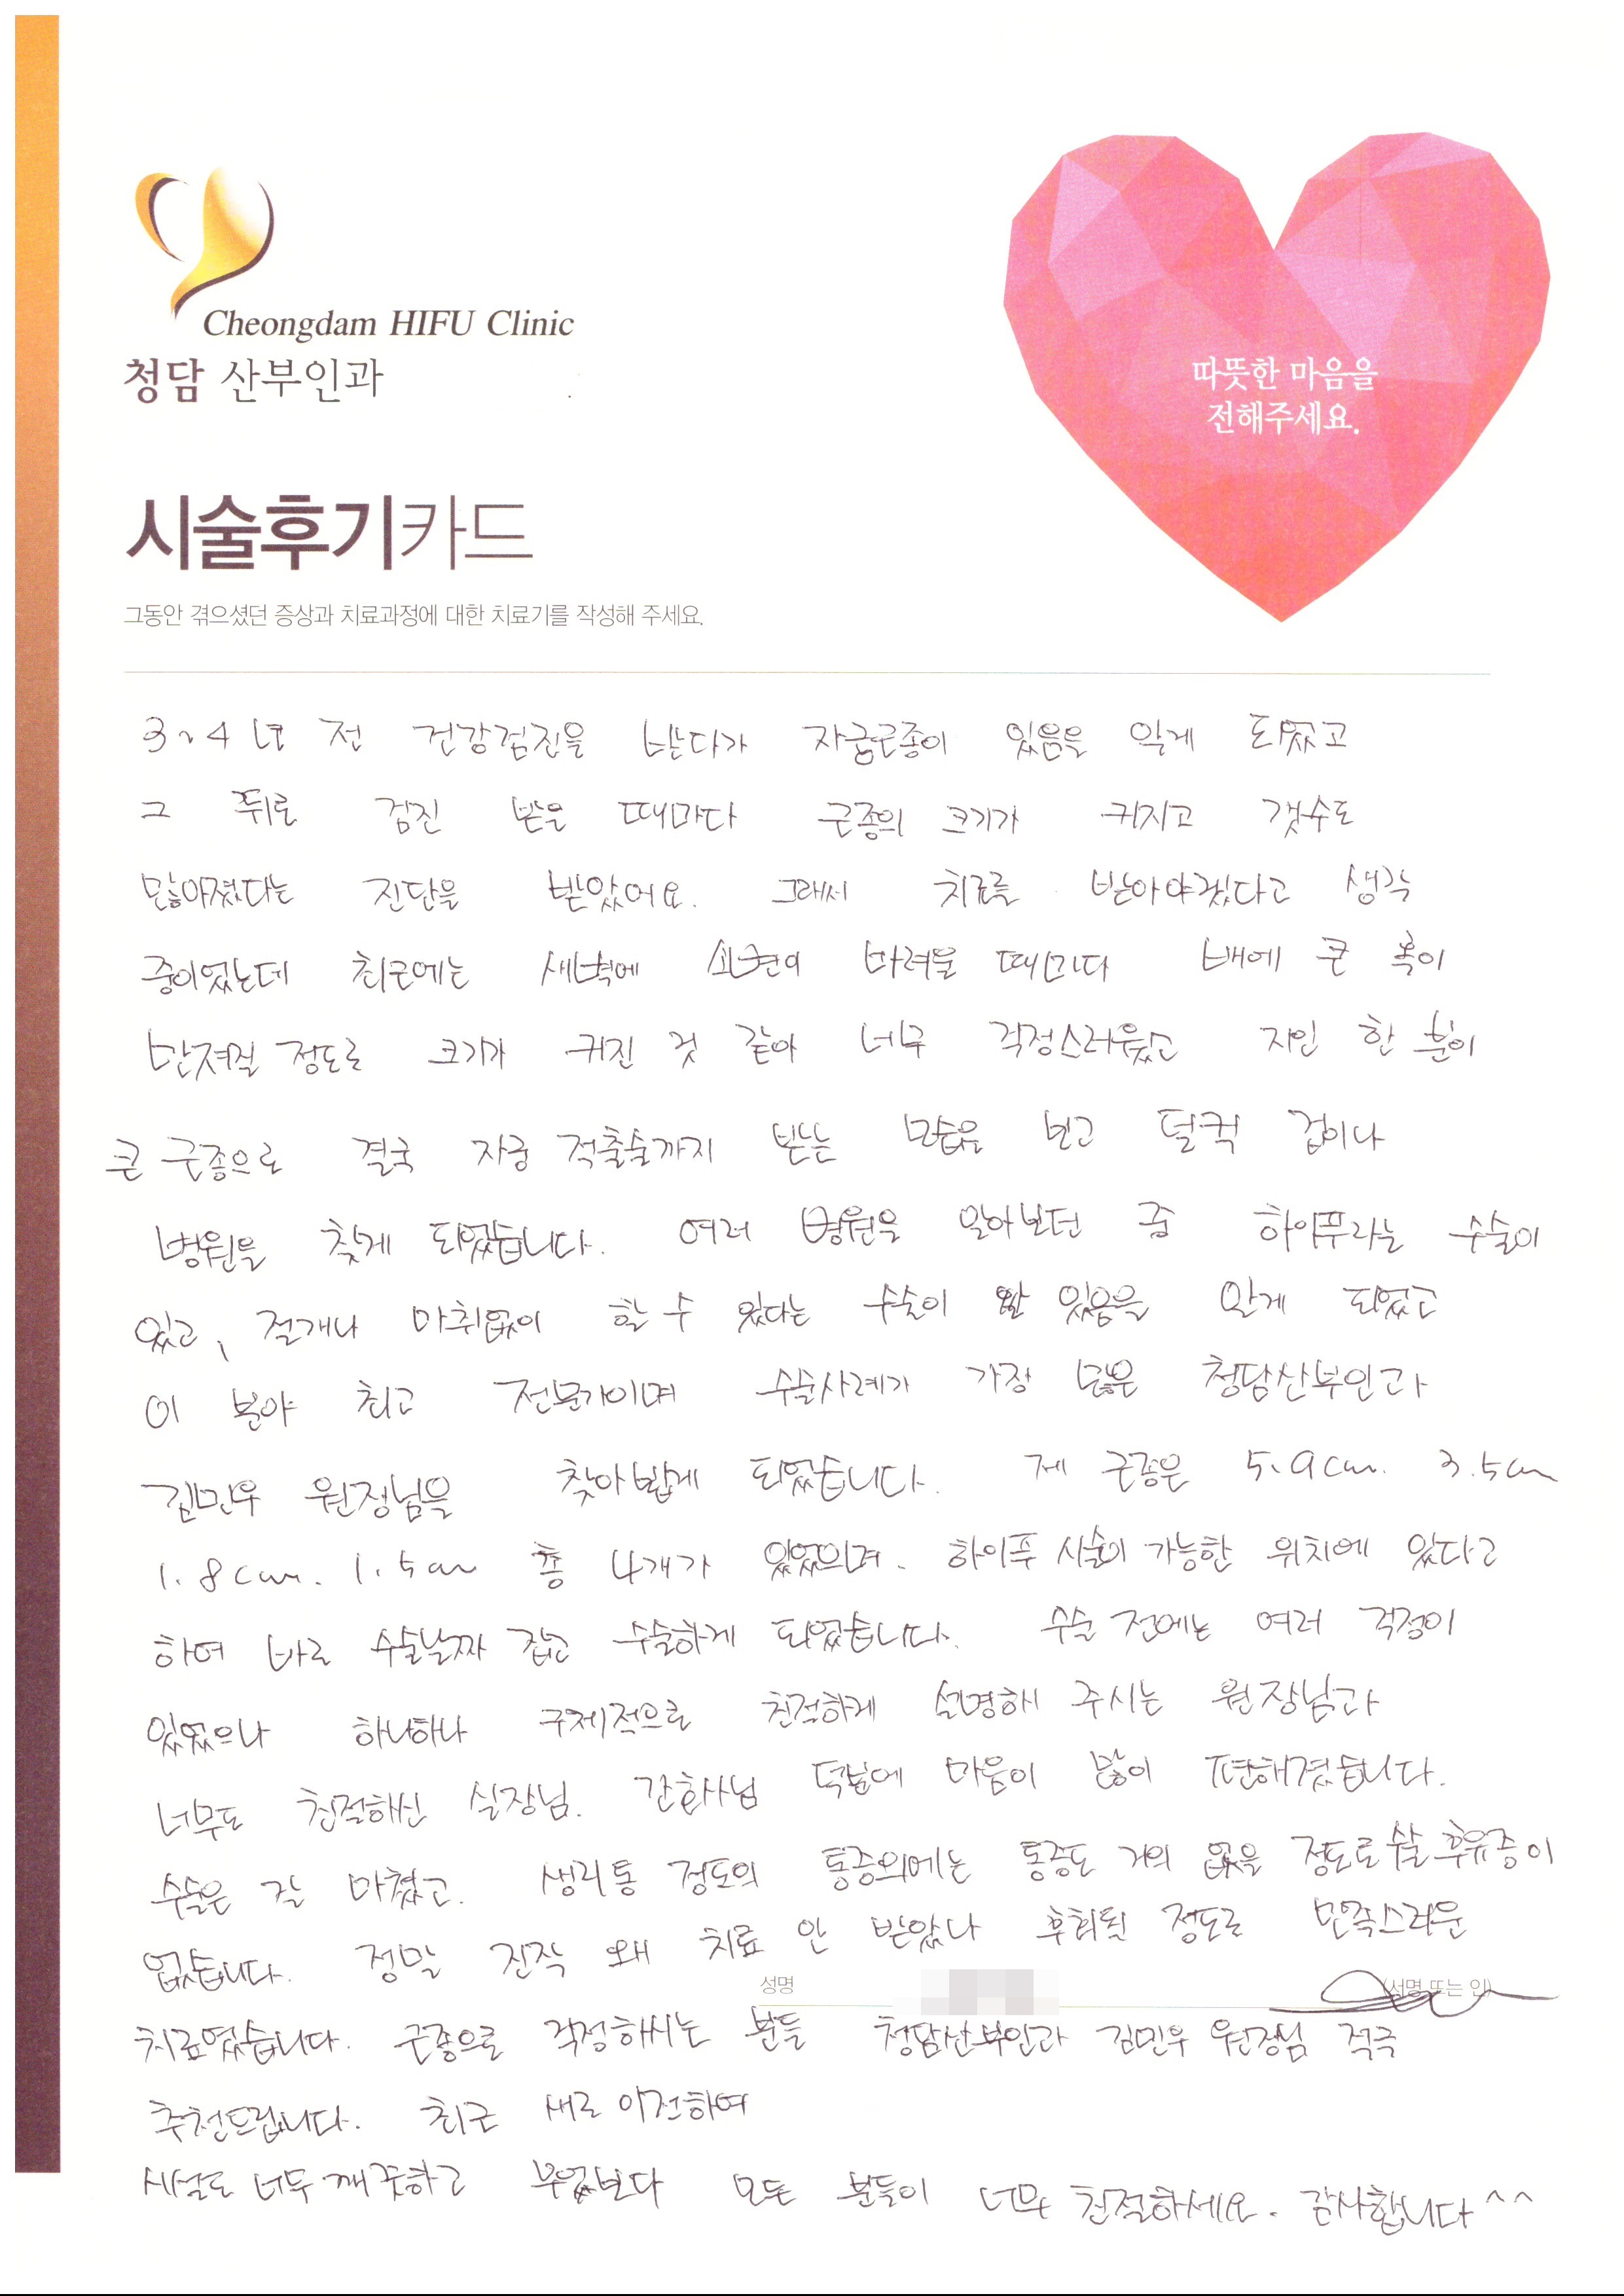 Cheongdam HIFU Clinic
청담 산부인과
따뜻한 마음을
전해주세요.
시술후기카드
그동안 겪으셨던 증상과 치료과정에 대한 치료기를 작성해 주세요.
3~4년 전 건강검진을 받다가 자궁근종이 있음을 알게 되었고
그 뒤로 검진 받을 때마다 근종의 크기가 커지고 갯수도
많아졌다는 진단을 받았어요. 그래서 치료를 받아야겠다고 생각
중이었는데 최근에는 새벽에 소변이 마려울 때마다 배에 큰 혹이
만져질 정도로 크기가 커진 것 같아 너무 걱정스러웠고 지인 한 분이
큰 근종으로 결국 자궁 적출술까지 받는 모습을 보고 덜컥 겁이나
병원을 찾게 되었습니다. 여러 병원을 알아보던 중 하이푸라는 수술이
있고, 절개나 마취없이 할 수 있다는 수술이 있음을 알게 되었고
이 분야 최고 전문가이며 수술사례가 가장 많은 청담산부인과
김민우 원장님을 찾아뵙게 되었습니다. 제 근종은 5.9cm. 3.5cm
1.8cm. 1.5cm 총 4개가 있었으며. 하이푸 시술이 가능한 위치에 있다고
하여 바로 수술날짜 잡고 수술하게 되었습니다. 수술 전에는 여러 걱정이
있었으나 하나하나 구체적으로 친절하게 설명해 주시는 원장님과
너무도 친절하신 실장님. 간호사님 덕분에 마음이 많이 편해졌습니다.
수술은 잘 마쳤고. 생리통 정도의 통증외에는 통증도 거의 없을 정도로 수술 후유증이
없습니다. 정말 진작 왜 치료 안 받았나 후회될 정도로 만족스러운
성명 (서명 또는 인)
치료였습니다. 근종으로 걱정하시는 분들 청담산부인과 김민우 원장님 적극
추천드립니다. 최근 새로 이전하여
시설도 너무 깨끗하고 무엇보다 모든 분들이 너무 친절하세요. 감사합니다^^